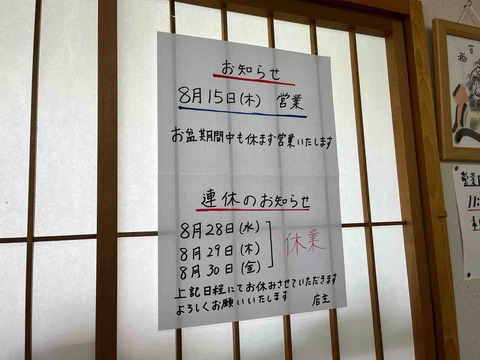 お知らせ
8月15日(木) 営業
お盆期間中も休まず営業いたします
連休のお知らせ
8月28日(水)
8月29日(木)
8月30日(金)
休業
上記日程にてお休みさせていただきます
よろしくお願いいたします 店主
百福